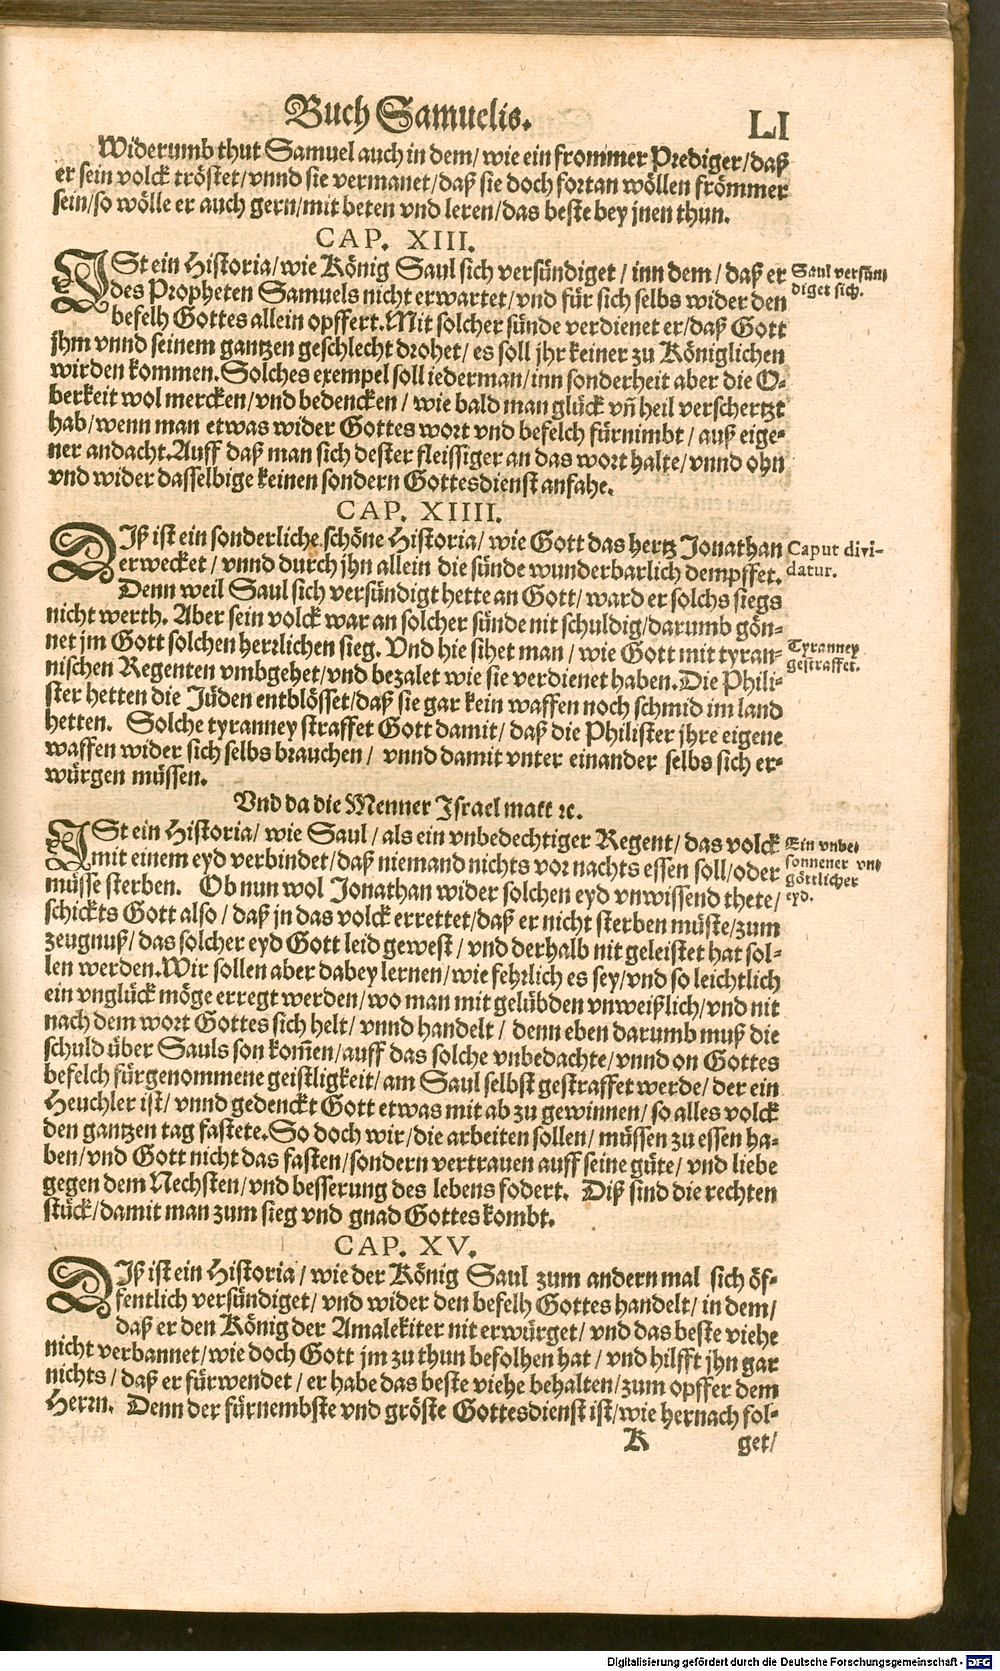 Buch Samuelis. LI
Widerumb thut Samuel auch in dem/ wie ein frommer Prediger/daß
er sein volck tröstet/vnnd sie vermanet/daß sie doch fortan wöllen frömmer
sein/so wölle er auch gern/mit beten vnd leren/das beste bey jnen thun.
CAP. XIII.
ISt ein Historia/wie König Saul sich versündiget / inn dem/ daß er
des Propheten Samuels nicht erwartet/vnd für sich selbs wider den
befelh Gottes allein opffert.Mit solcher sünde verdienet er/daß Gott
jhm vnnd seinem gantzen geschlecht drohet/ es soll jhr keiner zu Königlichen
wirden kommen.Solches exempel soll iederman/inn sonderheit aber die O-
berkeit wol mercken/vnd bedencken / wie bald man glück vñ heil verschertzt
hab/wenn man etwas wider Gottes wort vnd befelch fürnimbt / auß eige-
ner andacht.Auff daß man sich dester fleissiger an das wort halte/vnnd ohn
vnd wider dasselbige keinen sondern Gottesdienst anfahe.
Saul versün-
diget sich.
CAP. XIIII.
DIß ist ein sonderliche schöne Historia/ wie Gott das hertz Jonathan
erwecket / vnnd durch jhn allein die sünde wunderbarlich dempffet.
Denn weil Saul sich versündigt hette an Gott/ ward er solchs siegs
nicht werth. Aber sein volck war an solcher sünde nit schuldig/darumb gön-
net jm Gott solchen herrlichen sieg. Vnd hie sihet man / wie Gott mit tyran-
nischen Regenten vmbgehet/vnd bezalet wie sie verdienet haben.Die Phili-
ster hetten die Jüden entblösset/daß sie gar kein waffen noch schmid im land
hetten. Solche tyranney straffet Gott damit/ daß die Philister jhre eigene
waffen wider sich selbs brauchen / vnnd damit vnter einander selbs sich er-
würgen müssen.
Caput divi-
datur.
Tyranney
gestraffet.
Vnd da die Menner Israel matt ꝛc.
ISt ein Historia/ wie Saul / als ein vnbedechtiger Regent/ das volck
mit einem eyd verbindet/daß niemand nichts vor nachts essen soll/oder
müsse sterben. Ob nun wol Jonathan wider solchen eyd vnwissend thete/
schickts Gott also / daß jn das volck errettet/daß er nicht sterben müste/zum
zeugnuß/das solcher eyd Gott leid gewest / vnd derhalb nit geleistet hat sol-
len werden.Wir sollen aber dabey lernen/wie fehrlich es sey/vnd so leichtlich
ein vnglück möge erregt werden/wo man mit gelübden vnweißlich/vnd nit
nach dem wort Gottes sich helt/ vnnd handelt / denn eben darumb muß die
schuld über Sauls son kom̃en/auff das solche vnbedachte/vnnd on Gottes
befelch fürgenommene geistligkeit/am Saul selbst gestraffet werde/der ein
Heuchler ist/ vnnd gedenckt Gott etwas mit ab zu gewinnen/ so alles volck
den gantzen tag fastete.So doch wir/die arbeiten sollen/ müssen zu essen ha-
ben/vnd Gott nicht das fasten/sondern vertrauen auff seine güte/ vnd liebe
gegen dem Nechsten/vnd besserung des lebens fodert. Diß sind die rechten
stück/damit man zum sieg vnd gnad Gottes kombt.
Ein vnbe-
sonnener vn-
göttlicher
eyd.
CAP. XV.
DIß ist ein Historia/ wie der König Saul zum andern mal sich öf-
fentlich versündiget/ vnd wider den befelh Gottes handelt/ in dem/
daß er den König der Amalekiter nit erwürget/ vnd das beste viehe
nicht verbannet/wie doch Gott jm zu thun befolhen hat / vnd hilfft jhn gar
nichts / daß er fürwendet / er habe das beste viehe behalten/zum opffer dem
Herrn. Denn der fürnembste vnd gröste Gottesdienst ist/wie hernach fol-
K get/
Digitalisierung gefördert durch die Deutsche Forschungsgemeinschaft - DFG